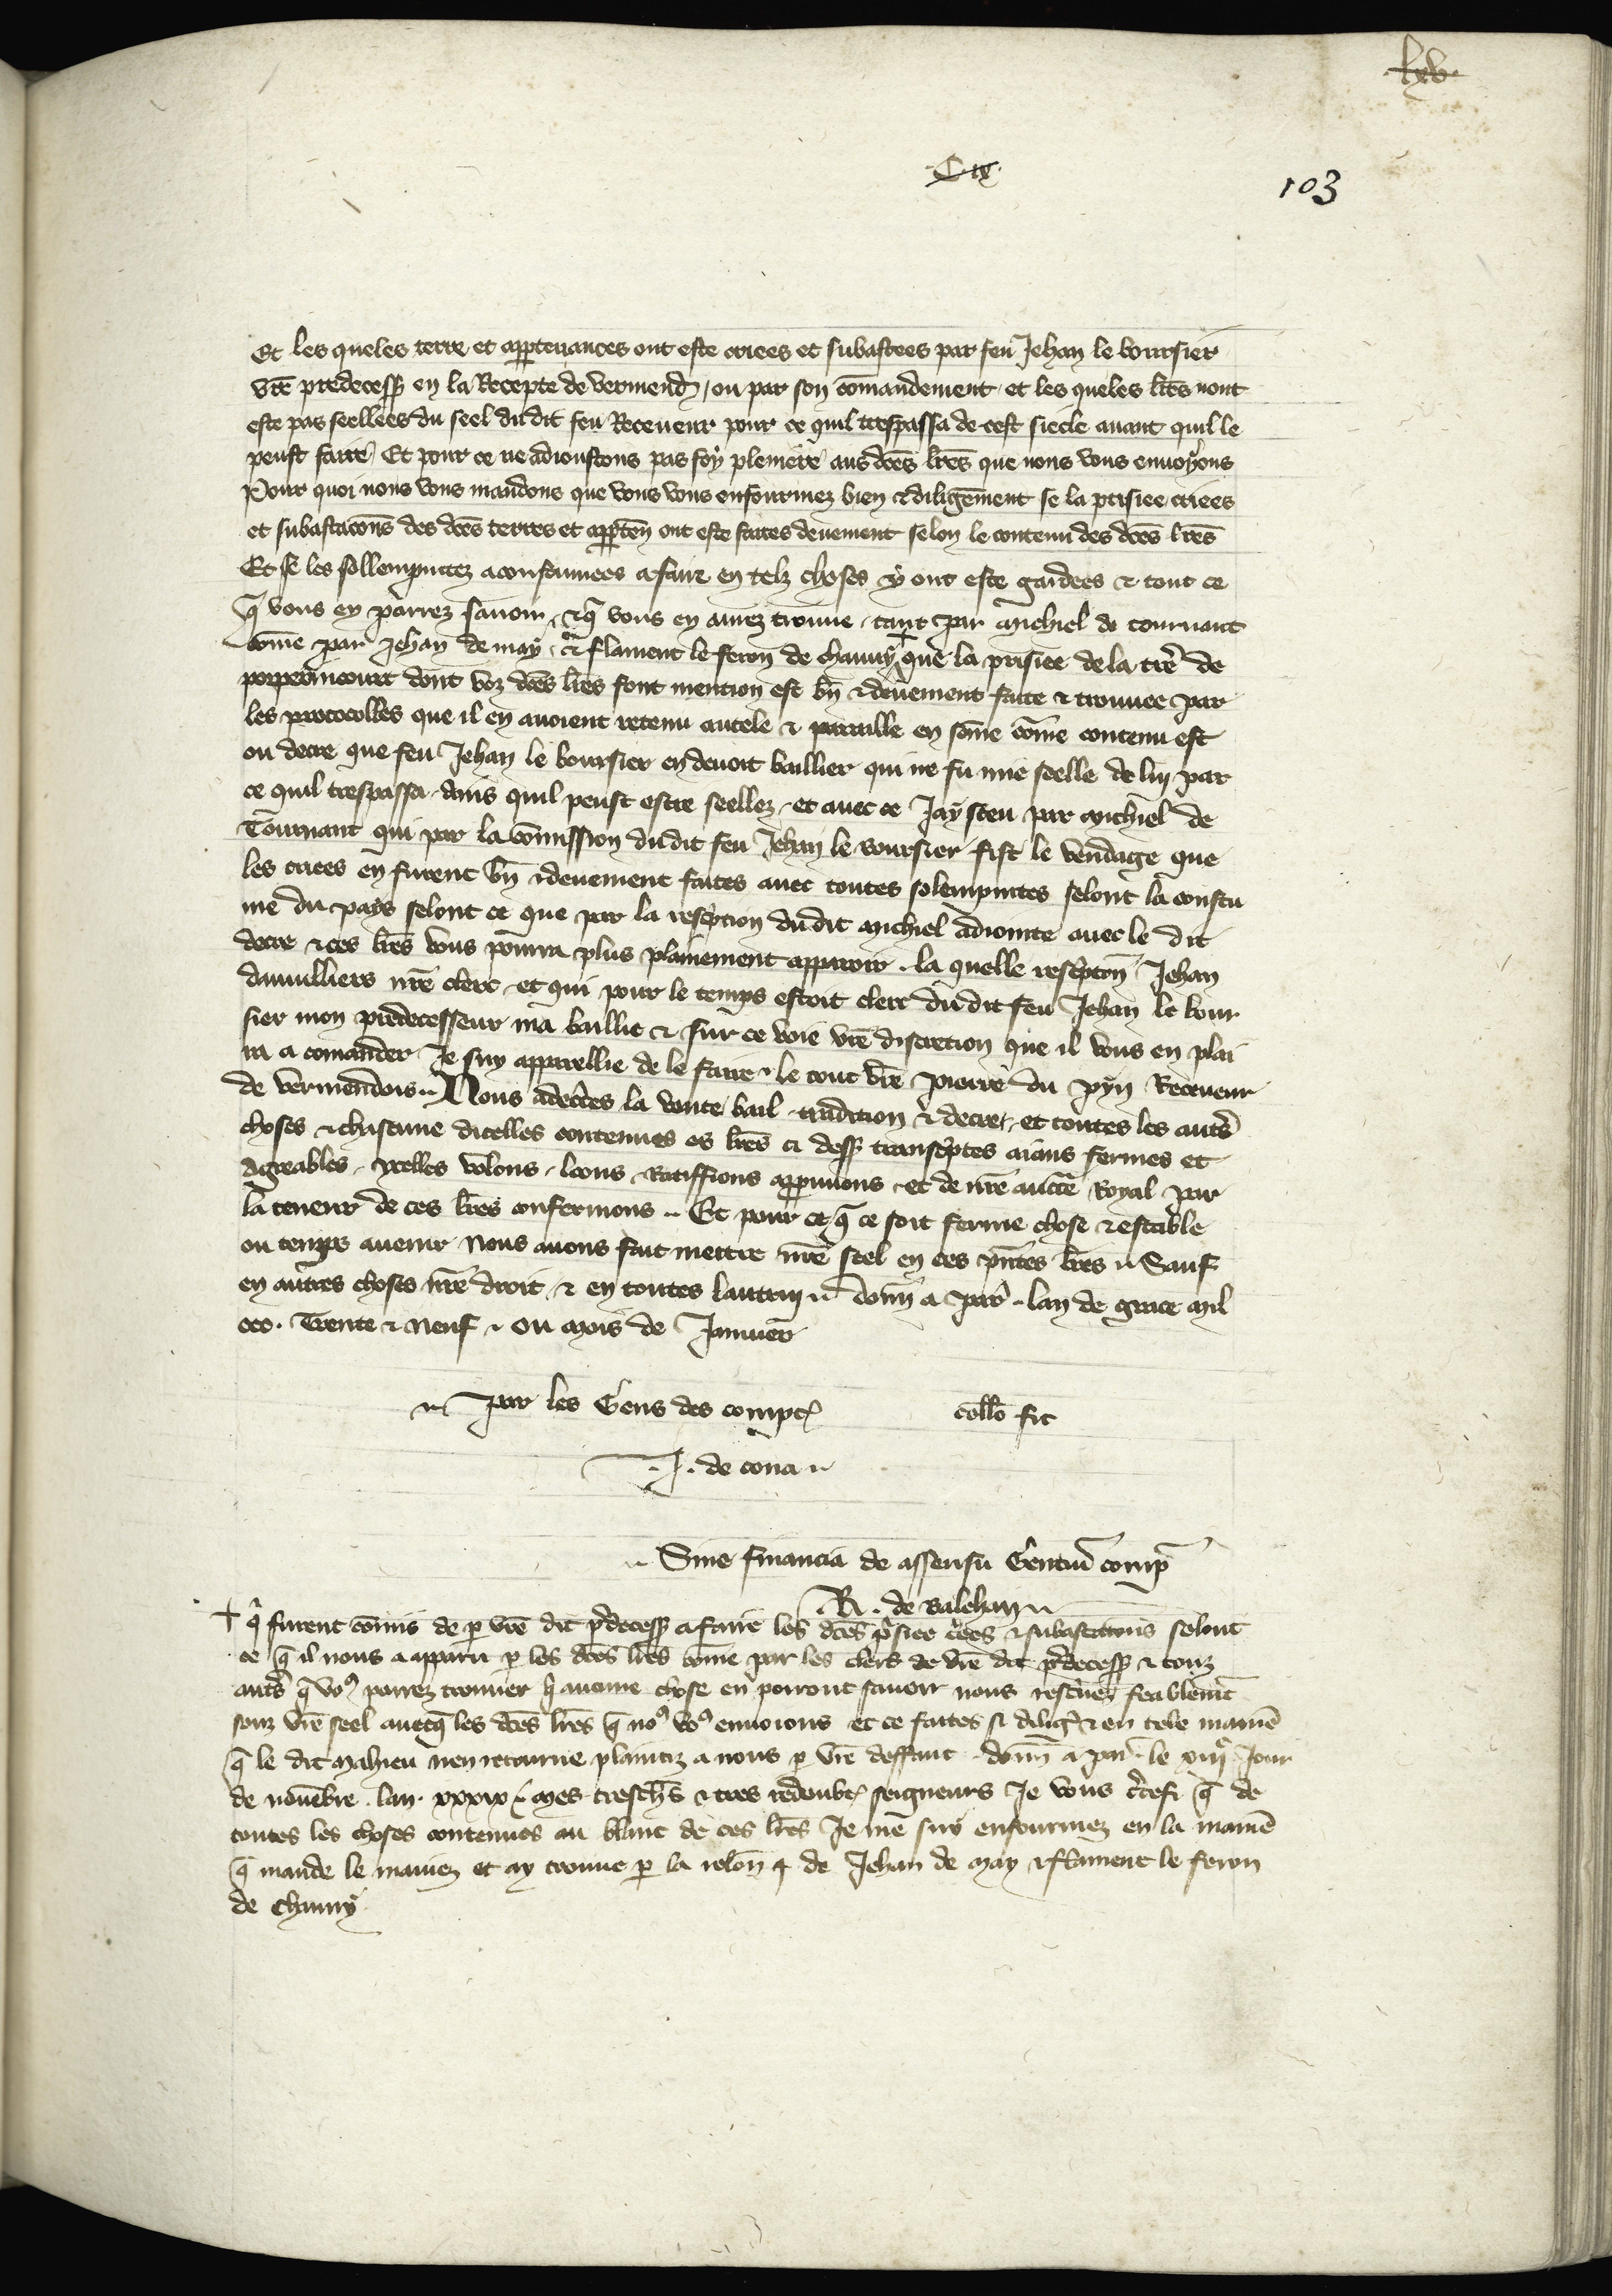 lxv
C ix
103
Et les queles terre et appertenances ont este criees et subastees par feu Jehan le boursier
vre predecess en la Recepte de vermend / ou par son comandement et les queles lres nont
este pas seellees du seel du dit feu Receveur pour ce quil trespassa de cest siecle avant quil le
peust faire Et pour ce ne adioustons pas foy pleniere aus dces lres que nous vous envoyons
Pour quoi nous vous mandons que vous vous enfourmez bien et diligemment se la prisiee criees
et subastacons des dces terres et apperten ont este faites deuement selon le contenu des dces lres
Et se les sollempnitez acoustumees a faire en telz choses y ont este gardees et tout ce
q vous en parrez savoir et q vous en aurez trouve tant par michiel de tournant
come par Jehan de may et flament le feron de chauny + que la prisiee de la tre de
porpermcourt dont voz dces lres font mention est bn et deuement faite et trouvee par
les prothocolles que il en avoient retenu autele et pareille en some come contenu est
ou decre que feu Jehan le boursier en devoit baillier qui ne fu mie seelle de lui par
ce quil trespassa avis quil peust estre seellez et avec ce Jay sceu par michiel de
Tournant qui par la comission du dit feu Jehan le boursier fist le vendage que
les criees en furent bn et deuement faites avec toutes solempnites selont la coustu
me du pays selont ce que par la rescription du dit michiel adiointe avec le dit
decre et ces lres vous pourra plus plainement apparoir la quelle rescripton Jehan
damvilliers nre clerc et qui pour le temps estoit clerc du dit feu Jehan le bour
sier mon predecesseur ma baillie et sur ce voie vre discretion que il vous en plai
ra a comander Je suy apparellie de le faire le tout vre pierre du pyn Receveur
de vermendois Nous adecertes la vente bail tradition et decret et toutes les autres
choses et chascune dicelles contenues es lres ci dess transcriptes aians fermes et
agreables ycelles volons loons Ratiffions approuvons et de nre aucte Royal par
la teneur de ces lres confermons Et pour ce q ce soit ferme chose et estable
ou temps avenir Nous avons fait mettre nre seel en ces pntes lres Sauf
en autres choses nre droit et en toutes lautruy donn a par lan de grace mil
ccc Trente et Neuf ou mois de Janvier
Par les Gens des compt collo fit
J. de cona
Sine financia de assensu Gentium comp
R. de balehan
+ q furent comis de p vre dit predecess a faire les dces prisiee criees et subastacions selont
ce q il nous a apparu p les dces lres come par les clers de vre dit predecess et touz
autres q vo9 porrez trouver q aucune chose en porront savoir nous rescrivez feablemt
souz vre seel avecq les dces lres q no9 vo9 envoions et ce faites si diligt et en tele manie
q le dit Mahieu nen retourne plaintiz a nous p vre deffaut donn a par le xiiij Jour
de novembre lan xxxix Mes treschs et tres redoubt seigneurs Je vous certefi q de
toutes les choses contenues au blanc de ces lres Je me suy enfourmez en la manie
q mande le maviez et ay trouve p la relon de Jehan de may et flament le feron
de chauny